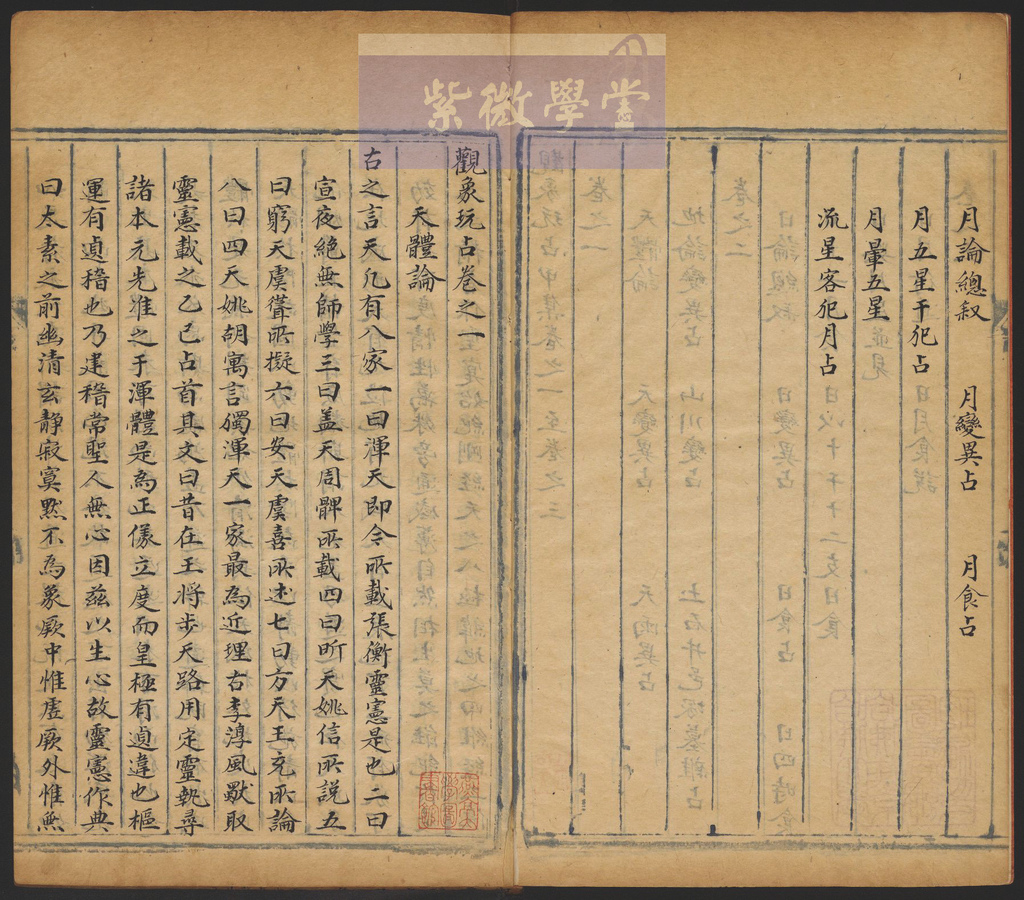 紫微學堂
月論總叙 月變異占 月食占
月五星干犯占
月暈五星
流星客犯月占
觀象玩占卷之一
天體論
古之言天凡有八家一曰渾天即今所載張衡靈憲是也二曰
宣夜絶無師學三曰盖天周髀所載四曰昕天姚信所説五
曰窮天虞聳所擬六曰安天虞喜所述七曰方天王充所論
八曰四天姚胡寓言獨渾天一家最為近理古李淳風歇取
靈憲載之乙巳占首其文曰昔在王將步天路用定靈軌尋
諸本元先准之于渾體是為正儀立度而皇極有逌違也樞
運有逌稽也乃建稽常聖人無心因茲以生心故靈憲作典
曰太素之前幽清玄静寂寞黙不為象厥中惟虛厥外惟無